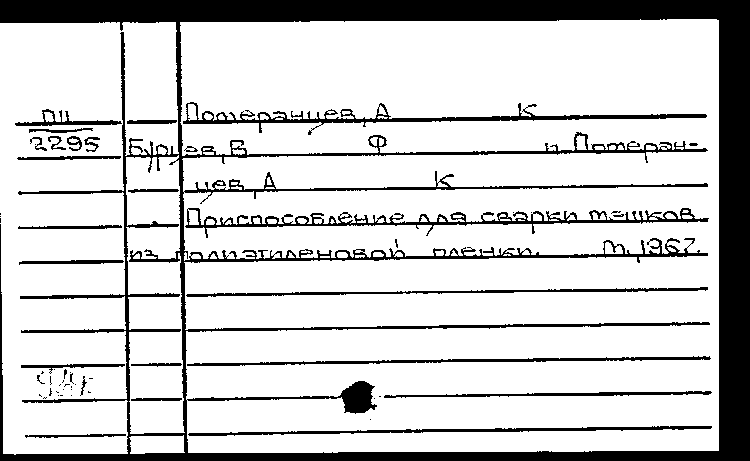 ПII Померанцев, А К
2295 Бурцев, В Ф и Померан-
цев, А К
Приспособление для сварки мешков
из полиэтиленовой пленки. М., 1967.